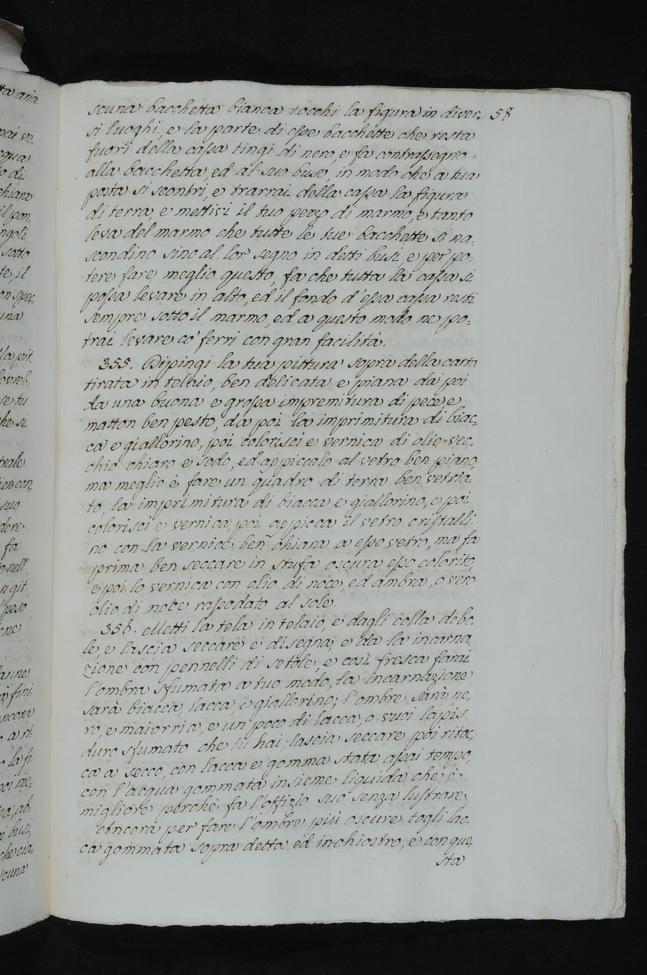 scuna bacchetta bianca tocchi la figura in diver- 58
si luoghi, e la parte di esse bacchette che resta
fuori della cassa tingi di nero, e fa contrassegno
alla bacchetta, ed al suo buso, in modo che a tua
posta si scontri, e trarrai della cassa la figura
di terra, e mettivi il tuo pezzo di marmo, e tanto
leva del marmo che tutte le tue bacchette si na-
scondino sino al lor segno in detti busi, e per po-
tere fare meglio questo, fa che tutta la cassa si
possa levare in alto, ed il fondo d'essa cassa resti
sempre sotto il marmo, ed a questo modo ne po-
trai levare co' ferri con gran facilità.
355. Dipingi la tua pittura sopra della carta
tirata in telaio, ben delicata e piana, da poi
da una buona e grossa impremitura di pece, e
matton ben pesto, da poi la imprimitura di biac-
ca e giallorino, poi colorisci e vernica di olio vec-
chio chiaro e sodo, ed appiccalo al vetro ben piano,
ma meglio è fare un quadro di terra ben vetria-
to, la imprimitura di biacca e giallorino, e poi
colorisci e vernica, poi appicca il vetro cristalli-
no con la vernice ben chiara a esso vetro, ma fa
prima ben seccare in stufa oscura esso colorito,
e poi lo vernica con olio di noce, ed ambra, o vero
olio di noce rassodato al sole.
356. Metti la tela in telaio, e dagli colla debo-
le, e lascia seccare e disegna, e da la incarna-
zione con pennelli di setole, e così fresca farai
l'ombra sfumata a tuo modo, la incarnazione
sarà biacca, lacca, e giallorino; l'ombre, sarà ne-
ro, e maiorria, e un poco di lacca, o vuoi lapis
duro sfumato che tu hai, lascia seccare, poi ritoc-
ca a secco, con lacca e gomma stata assai tempo,
con l'acqua gommata insieme liquida che è
migliore perchè fa l'offizio suo senza lustrare,
Ancora per fare l'ombre più oscure togli lac-
ca gommata sopra detta, ed inchiostro, e con que-
sta